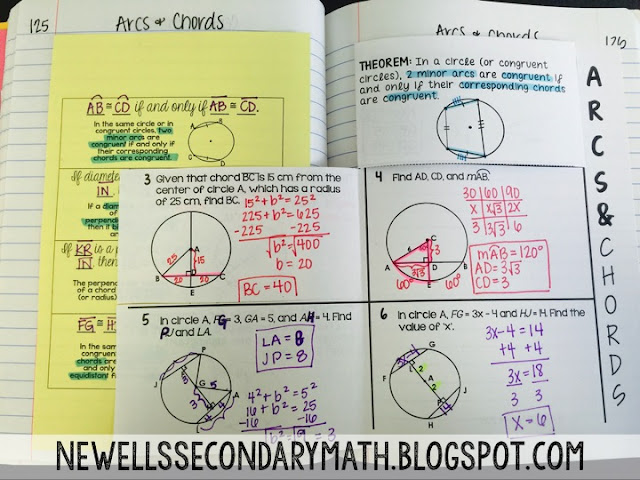 125
Arcs & Chords
AB ≅ CD if and only if AB ≅ CD.
In the same circle or in
congruent circles, two
minor arcs are
congruent if and only
if their corresponding
chords are congruent.
If diamet
IN
If a
perpend
then it
If KR is a
IN, then
The perpen
of a chord
(or radius)
FG ≅ H
In the same
congruent
chords
and only
equidistant
Arcs & Chords
126
THEOREM: In a circle (or congruent
circles), 2 minor arcs are congruent if
and only if their corresponding chords
are congruent.
ARCS & CHORDS
3 Given that chord BC is 15 cm from the
center of circle A, which has a radius
of 25 cm, find BC.
15² + b² = 25²
225 + b² = 625
-225 -225
√b² = √400
b = 20
BC = 40
A
25
15
B 20 D 20 C
E
4 Find AD, CD, and mAB.
30 | 60 | 90
x | x√3 | 2x
3 | 3√3 | 6
mAB = 120°
AD = 3√3
CD = 3
C
6
3
A D B
3√3
60° E 60°
5 In circle A, FG = 3, GA = 5, and AH = 4. Find
PJ and LA.
LA = 8
JP = 8
4² + b² = 5²
16 + b² = 25
-16 -16
√b² = √9 = 3
P
J
G 5
6 In circle A, FG = 3x - 4 and HJ = 14. Find the
value of 'x'.
3x - 4 = 14
+ 4 + 4
3x = 18
3 3
x = 6
G
3x-4
F
2
A
2
J
14
P
H
NEWELLSSECONDARYMATH.BLOGSPOT.COM